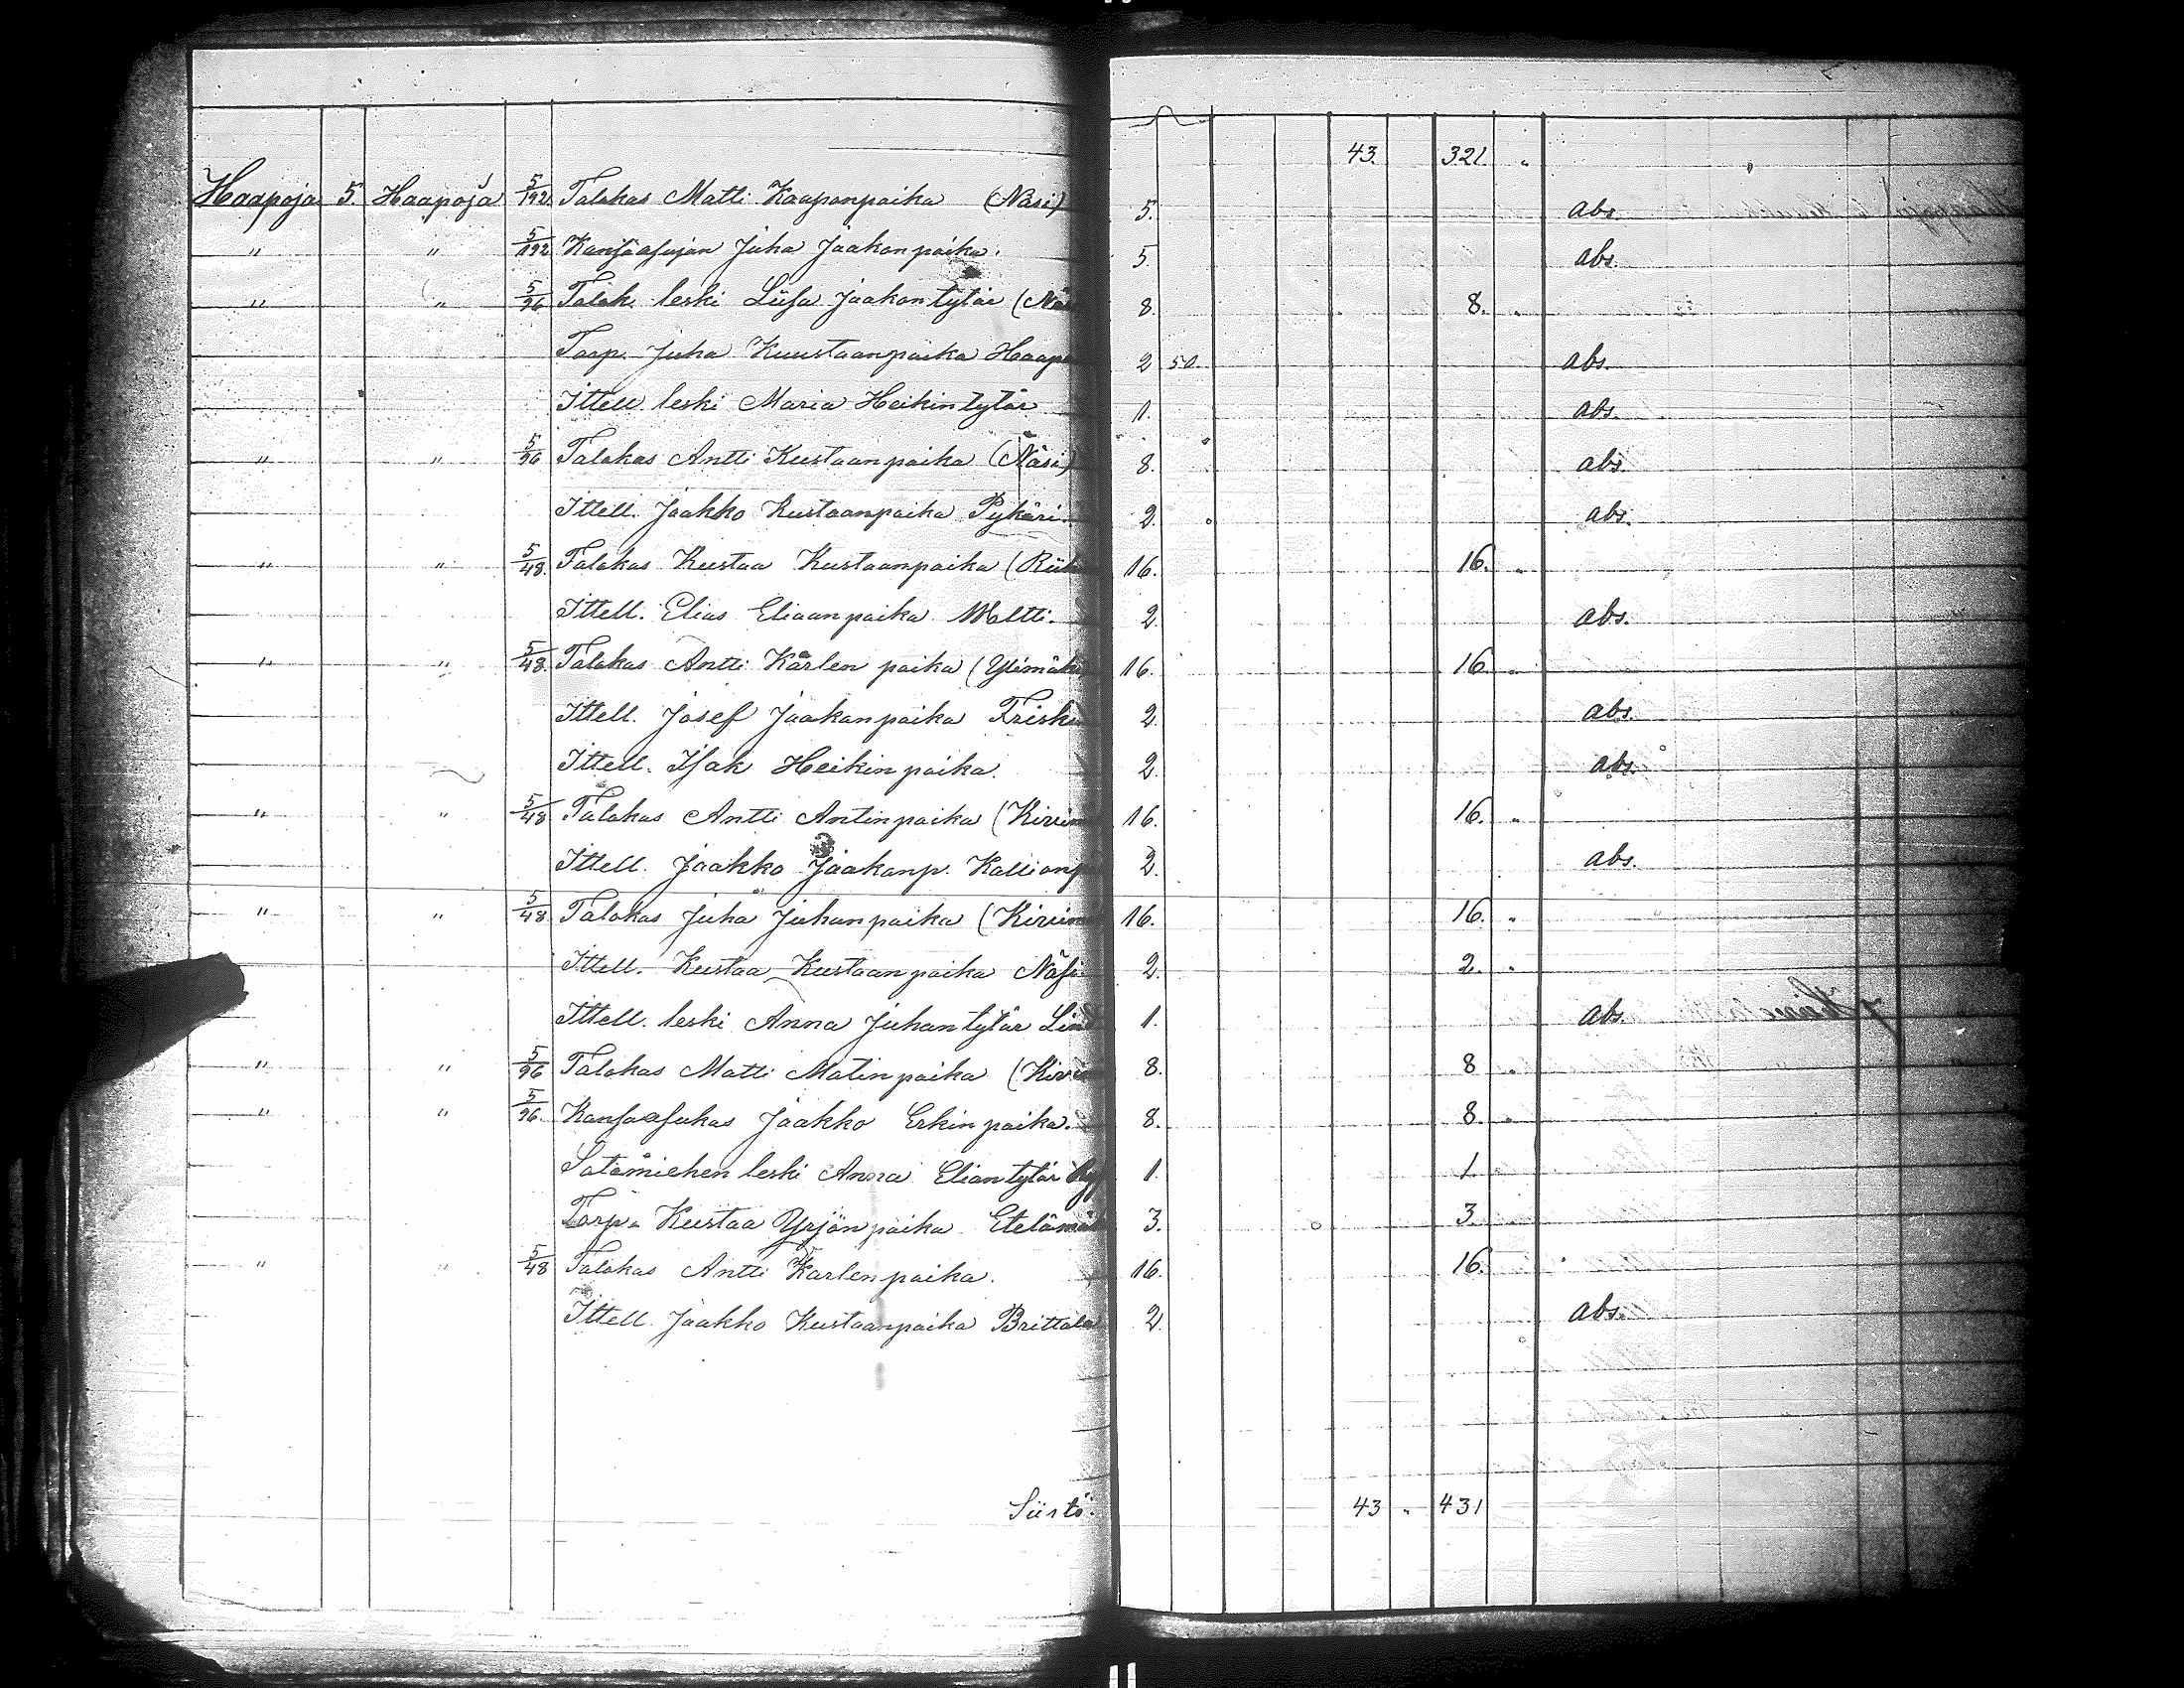 43. 321 "
Haapoja 5. Haapoja 5/192 Talokas Matti Kaaponpoika (Näsi) 5. abs.
" " 5/192 Kansaasujan Juha Jaakonpoika. 5. abs.
" " 5/96 Talok. leski Liisa Jaakontytär 8. 8. "
Torp. Juha Kuustaanpoika 2 50. abs.
Ittell. leski Maria Heikintytär 1. abs.
" " 5/96 Talokas Antti Kustaanpoika (Näsi) 8. abs.
Ittell. Jaakko Kustaanpoika Pykäri. 2. abs.
" " 5/48 Talokas Kustaa Kustaanpoika 16. 16. "
Ittell. Elias Eliaanpoika Meltti. 2. abs.
" " 5/48 Talokas Antti Karlen poika (Ylimäki 16. 16 "
Ittell. Josef Jaakonpoika Frisk 2. abs.
Ittell. Isak Heikinpoika. 2. abs.
" " 5/48 Talokas Antti Antinpoika (Kivim 16. 16. "
Ittell. Jaakko Jaakonp. Kallionp 2. abs.
" " 5/48 Talokas Juha Juhanpoika (Kivim 16. 16. "
Ittell. Kustaa Kustaanpoika Näsi 2. 2. "
Ittell. leski Anna Juhantytär 1. abs.
" " 5/96 Talokas Matti Matinpoika 8. 8 "
" " 5/96. Kansaasukas Jaakko Erkinpoika. 8. 8. "
Sotamiehen leski Anna Eliantytär 1. 1.
Torp. Kustaa Yrjönpoika Etelämäk 3. 3.
" " 5/48 Talokas Antti Karlenpoika. 16. 16.
Ittell. Jaakko Kustaanpoika Brittala 2. abs.
Siirtö: 43 " 431